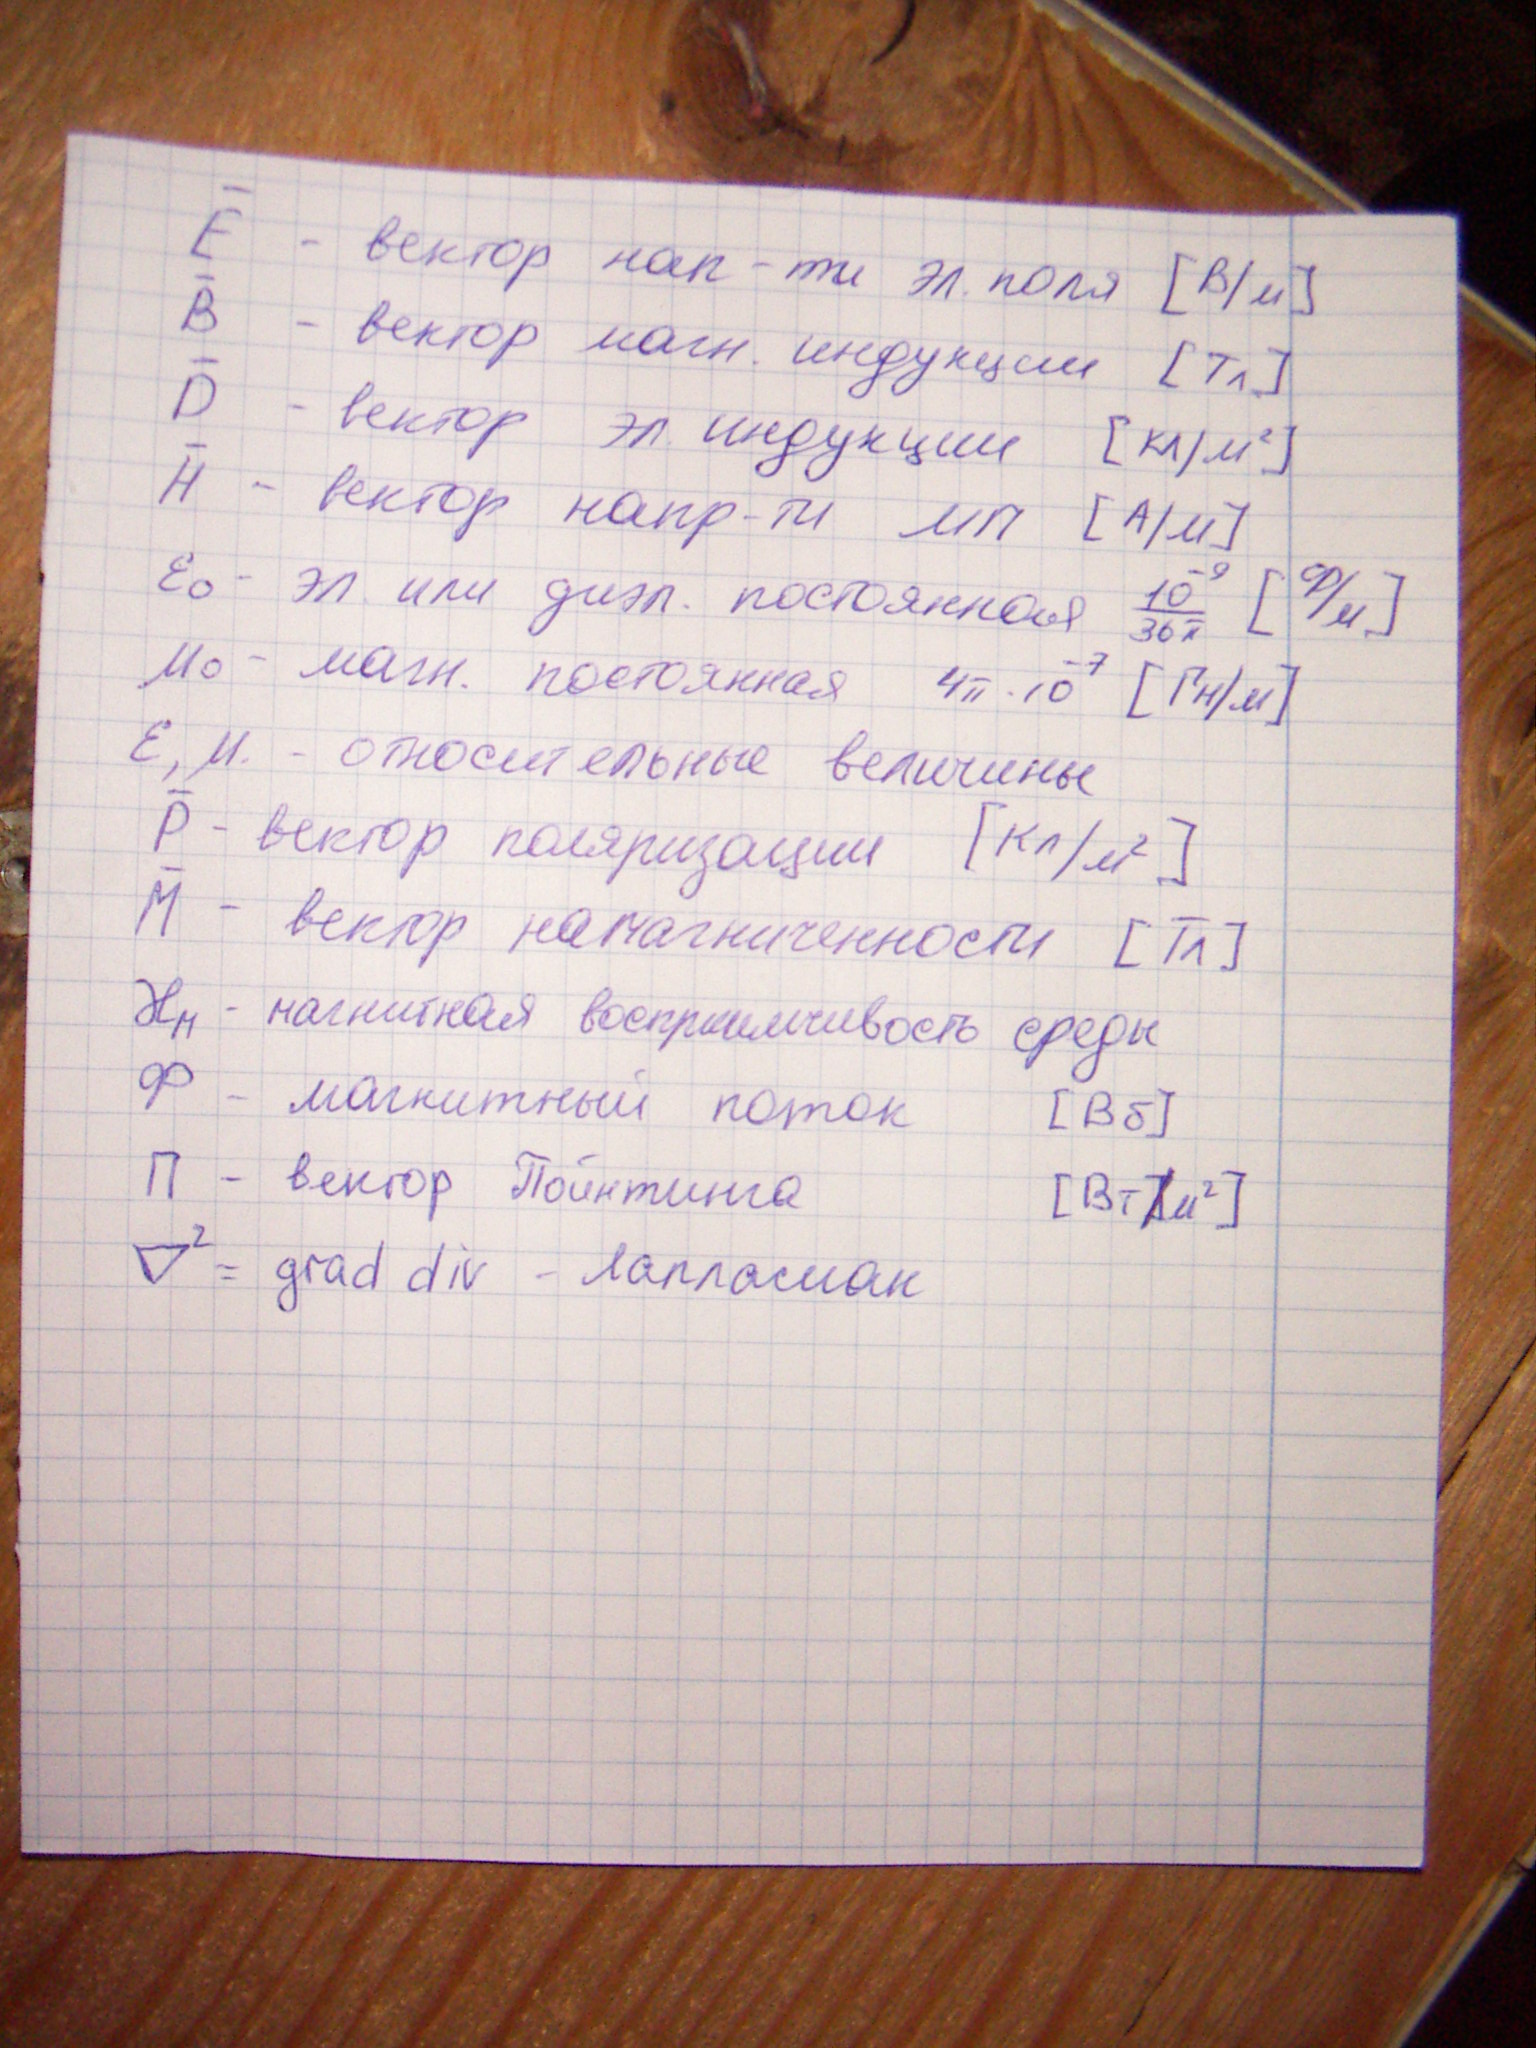 E̅ - вектор нап-ти эл. поля [В/м]
B̅ - вектор магн. индукции [Тл]
D̅ - вектор эл. индукции [Кл/м²]
H̅ - вектор напр-ти МП [А/м]
ε₀ - эл. или диэл. постоянная 10⁻⁹/36π [Ф/м]
μ₀ - магн. постоянная 4π·10⁻⁷ [Гн/м]
ε, μ. - относительные величины
P̅ - вектор поляризации [Кл/м²]
M̅ - вектор намагниченности [Тл]
ϰм - магнитная восприимчивость среды
Ф - магнитный поток [Вб]
П - вектор Пойнтинга [Вт/м²]
∇² = grad div - Лапласиан